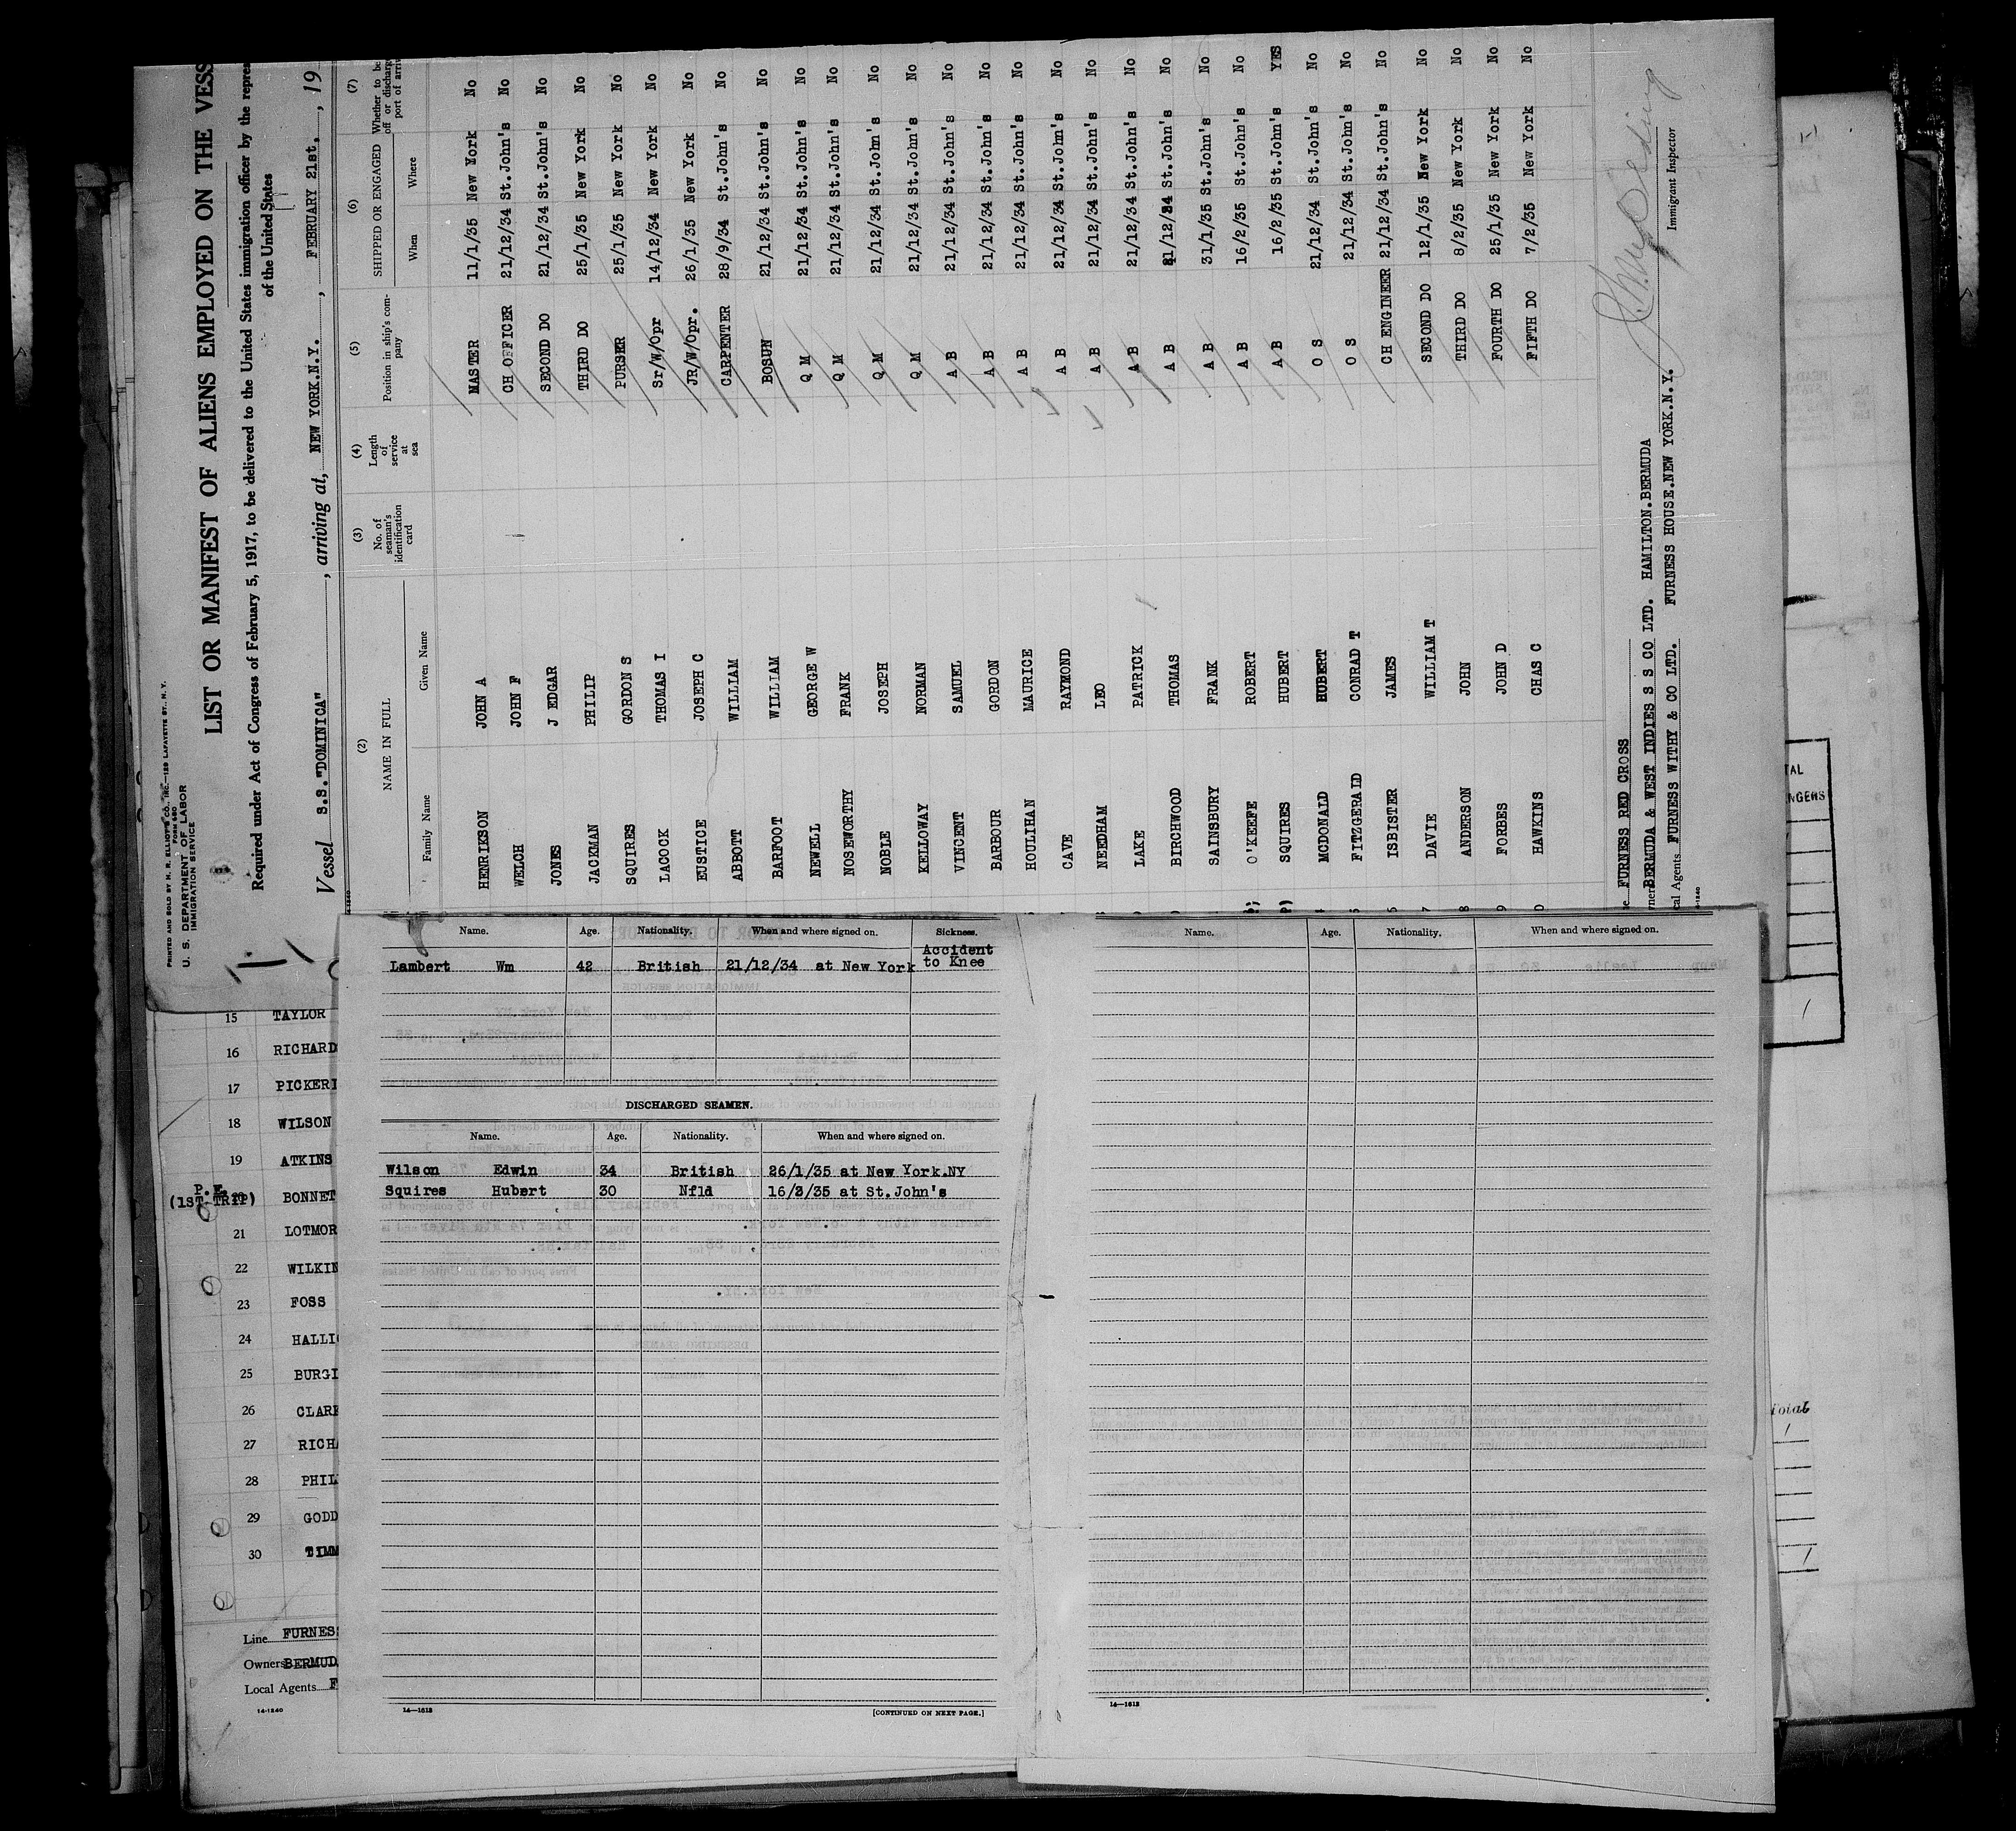 PRINTED AND SOLD BY H. R. ELLIOT & CO., INC.—129 LAFAYETTE ST., N. Y.
FORM 680
U. S. DEPARTMENT OF LABOR
IMMIGRATION SERVICE
LIST OR MANIFEST OF ALIENS EMPLOYED ON THE VESS
Required under Act of Congress of February 5, 1917, to be delivered to the United States immigration officer by the repres
of the United States
Vessel S.S."DOMINICA", arriving at, NEW YORK.N.Y., FEBRUARY 21st., 19
(2) (3) (4) (5) (6) (7)
NAME IN FULL No. of seaman's identification card Length of service at sea Position in ship's company SHIPPED OR ENGAGED Whether to be
Family Name Given Name When Where
HENRIKSON JOHN A MASTER 11/1/35 New York No
WELCH JOHN F CH OFFICER 21/12/34 St.John's No
JONES J EDGAR SECOND DO 21/12/34 St.John's No
JACKMAN PHILIP THIRD DO 25/1/35 New York No
SQUIRES GORDON S PURSER 25/1/35 New York No
LACOCK THOMAS I Sr/W/Opr 14/12/34 New York No
EUSTICE JOSEPH C JR/W/Opr. 26/1/35 New York No
ABBOTT WILLIAM CARPENTER 28/9/34 St.John's No
BARFOOT WILLIAM BOSUN 21/12/34 St.John's No
NEWELL GEORGE W Q M 21/12/34 St.John's No
NOSEWORTHY FRANK Q M 21/12/34 St.John's No
NOBLE JOSEPH Q M 21/12/34 St.John's No
KELLOWAY NORMAN Q M 21/12/34 St.John's No
VINCENT SAMUEL A B 21/12/34 St.John's No
BARBOUR GORDON A B 21/12/34 St.John's No
HOULIHAN MAURICE A B 21/12/34 St.John's No
CAVE RAYMOND A B 21/12/34 St.John's No
NEEDHAM LEO A B 21/12/34 St.John's No
LAKE PATRICK A B 21/12/34 St.John's No
BIRCHWOOD THOMAS A B 21/12/34 St.John's No
SAINSBURY FRANK A B 31/1/35 St.John's No
O'KEEFE ROBERT A B 16/2/35 St.John's No
SQUIRES HUBERT A B 16/2/35 St.John's YES
MCDONALD HUBERT O S 21/12/34 St.John's No
FITZGERALD CONRAD T O S 21/12/34 St.John's No
ISBISTER JAMES CH ENGINEER 21/12/34 St.John's No
DAVIE WILLIAM T SECOND DO 12/1/35 New York No
ANDERSON JOHN THIRD DO 8/2/35 New York No
FORBES JOHN D FOURTH DO 25/1/35 New York No
HAWKINS CHAS C FIFTH DO 7/2/35 New York No
FURNESS RED CROSS
BERMUDA & WEST INDIES S S CO LTD. HAMILTON.BERMUDA
cal Agents FURNESS WITHY & CO LTD. FURNESS HOUSE.NEW YORK.N.Y.
Immigrant Inspector
Name. Age. Nationality. When and where signed on. Sickness.
Lambert Wm 42 British 21/12/34 at New York Accident to Knee
DISCHARGED SEAMEN.
Name. Age. Nationality. When and where signed on.
Wilson Edwin 34 British 26/1/35 at New York.NY
Squires Hubert 30 Nfld 16/2/35 at St.John's
14—1613
[CONTINUED ON NEXT PAGE.]
Name. Age. Nationality. When and where signed on.
14—1613
15 TAYLOR
16 RICHARD
17 PICKERI
18 WILSON
19 ATKINS
(1ST TRIP) 20 BONNET
21 LOTMOR
22 WILKIN
23 FOSS
24 HALLI
25 BURGI
26 CLARK
27 RICH
28 PHIL
29 GODD
30 TIMM
Line FURNES
Owners BERMUD
Local Agents F
14-1240
TAL
NGERS
Total